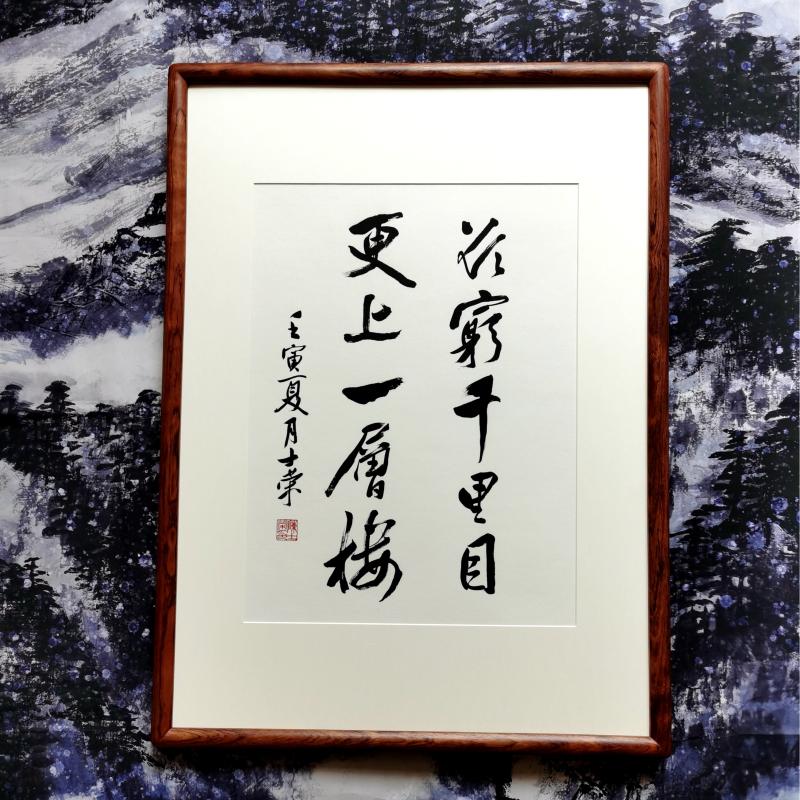 欲窮千里目
更上一層樓
壬寅夏月士榮